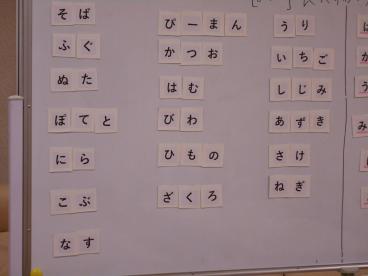 そば
ふぐ
ぬた
ぽてと
にら
こぶ
なす
ぴーまん
かつお
はむ
びわ
ひもの
ざくろ
うり
いちご
しじみ
あずき
さけ
ねぎ